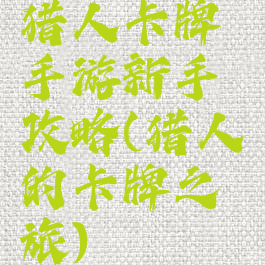 猎人卡牌
手游新手
攻略(猎人
的卡牌之
旅)